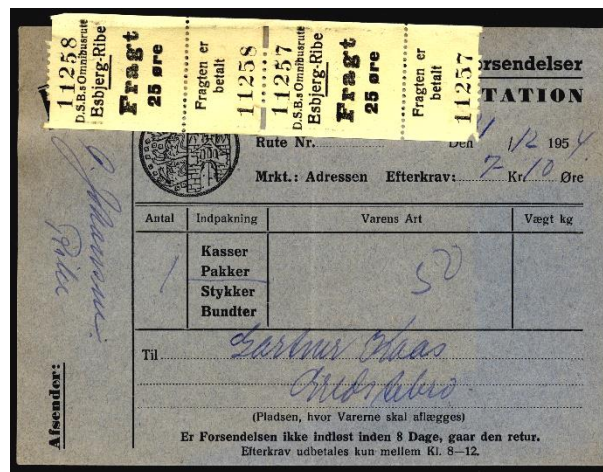 11258
D.S.B.s Omnibusrute
Esbjerg-Ribe
Fragt
25 øre
Fragten er
betalt
11258
11257
D.S.B.s Omnibusrute
Esbjerg-Ribe
Fragt
25 øre
Fragten er
betalt
11257
orsendelser
TATION
Rute Nr. Den 1/12 1954
Mrkt.: Adressen Efterkrav: 7 Kr. 10 Øre
Antal Indpakning Varens Art Vægt kg
Kasser
1 Pakker 50
Stykker
Bundter
Til Gartner Kaas
Gredstedbro.
(Pladsen, hvor Varerne skal aflægges)
Er Forsendelsen ikke indløst inden 8 Dage, gaar den retur.
Efterkrav udbetales kun mellem Kl. 8—12.
Afsender:
Johansen.
Ribe